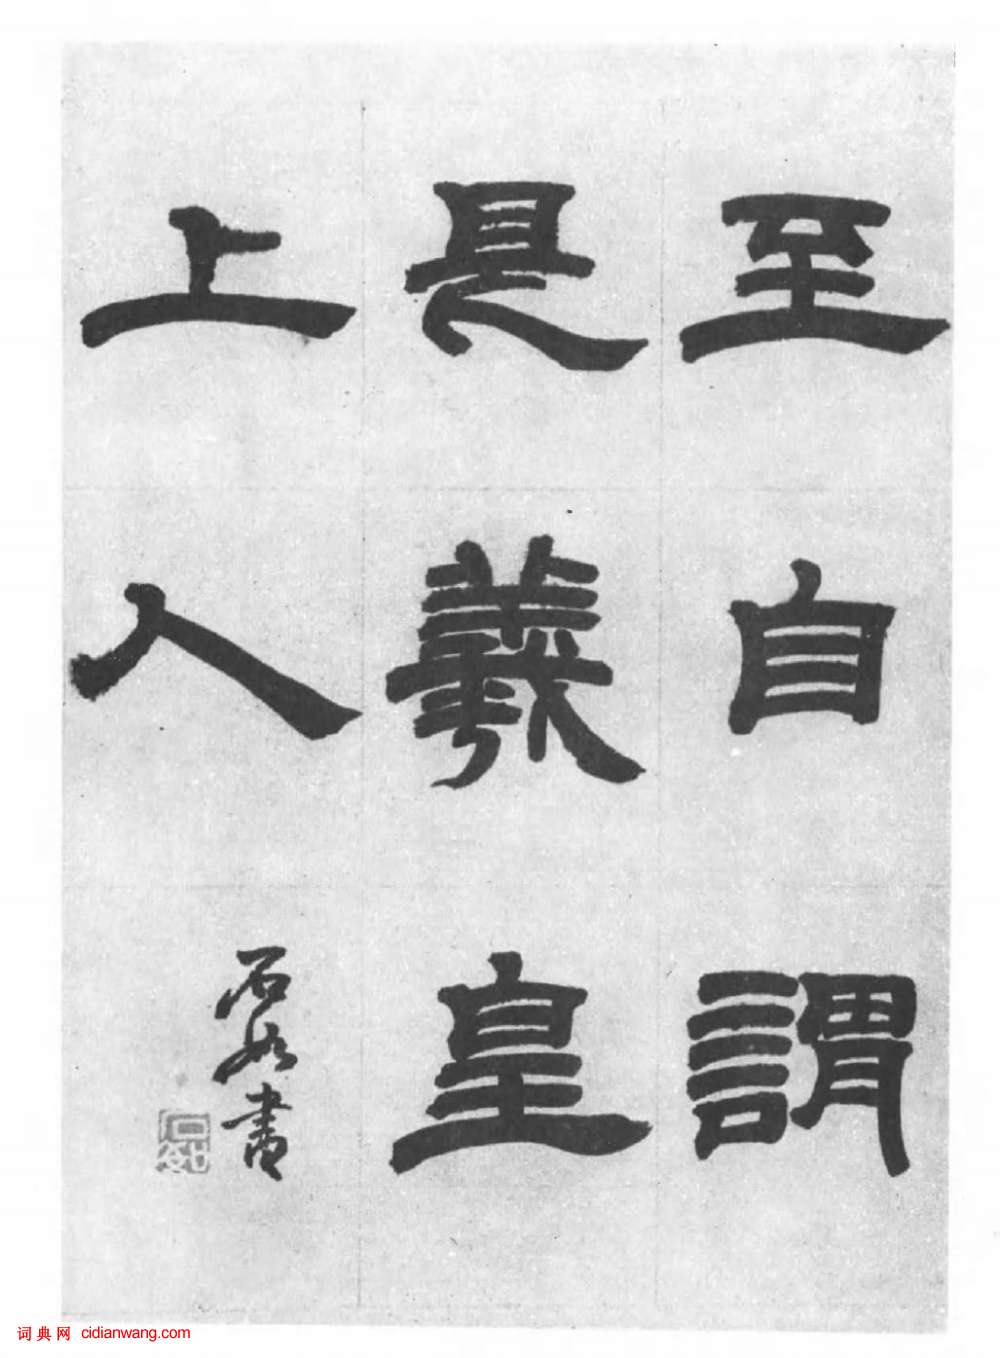 至自謂
是羲皇
上人
石如書
石如
词典网 cidianwang.com